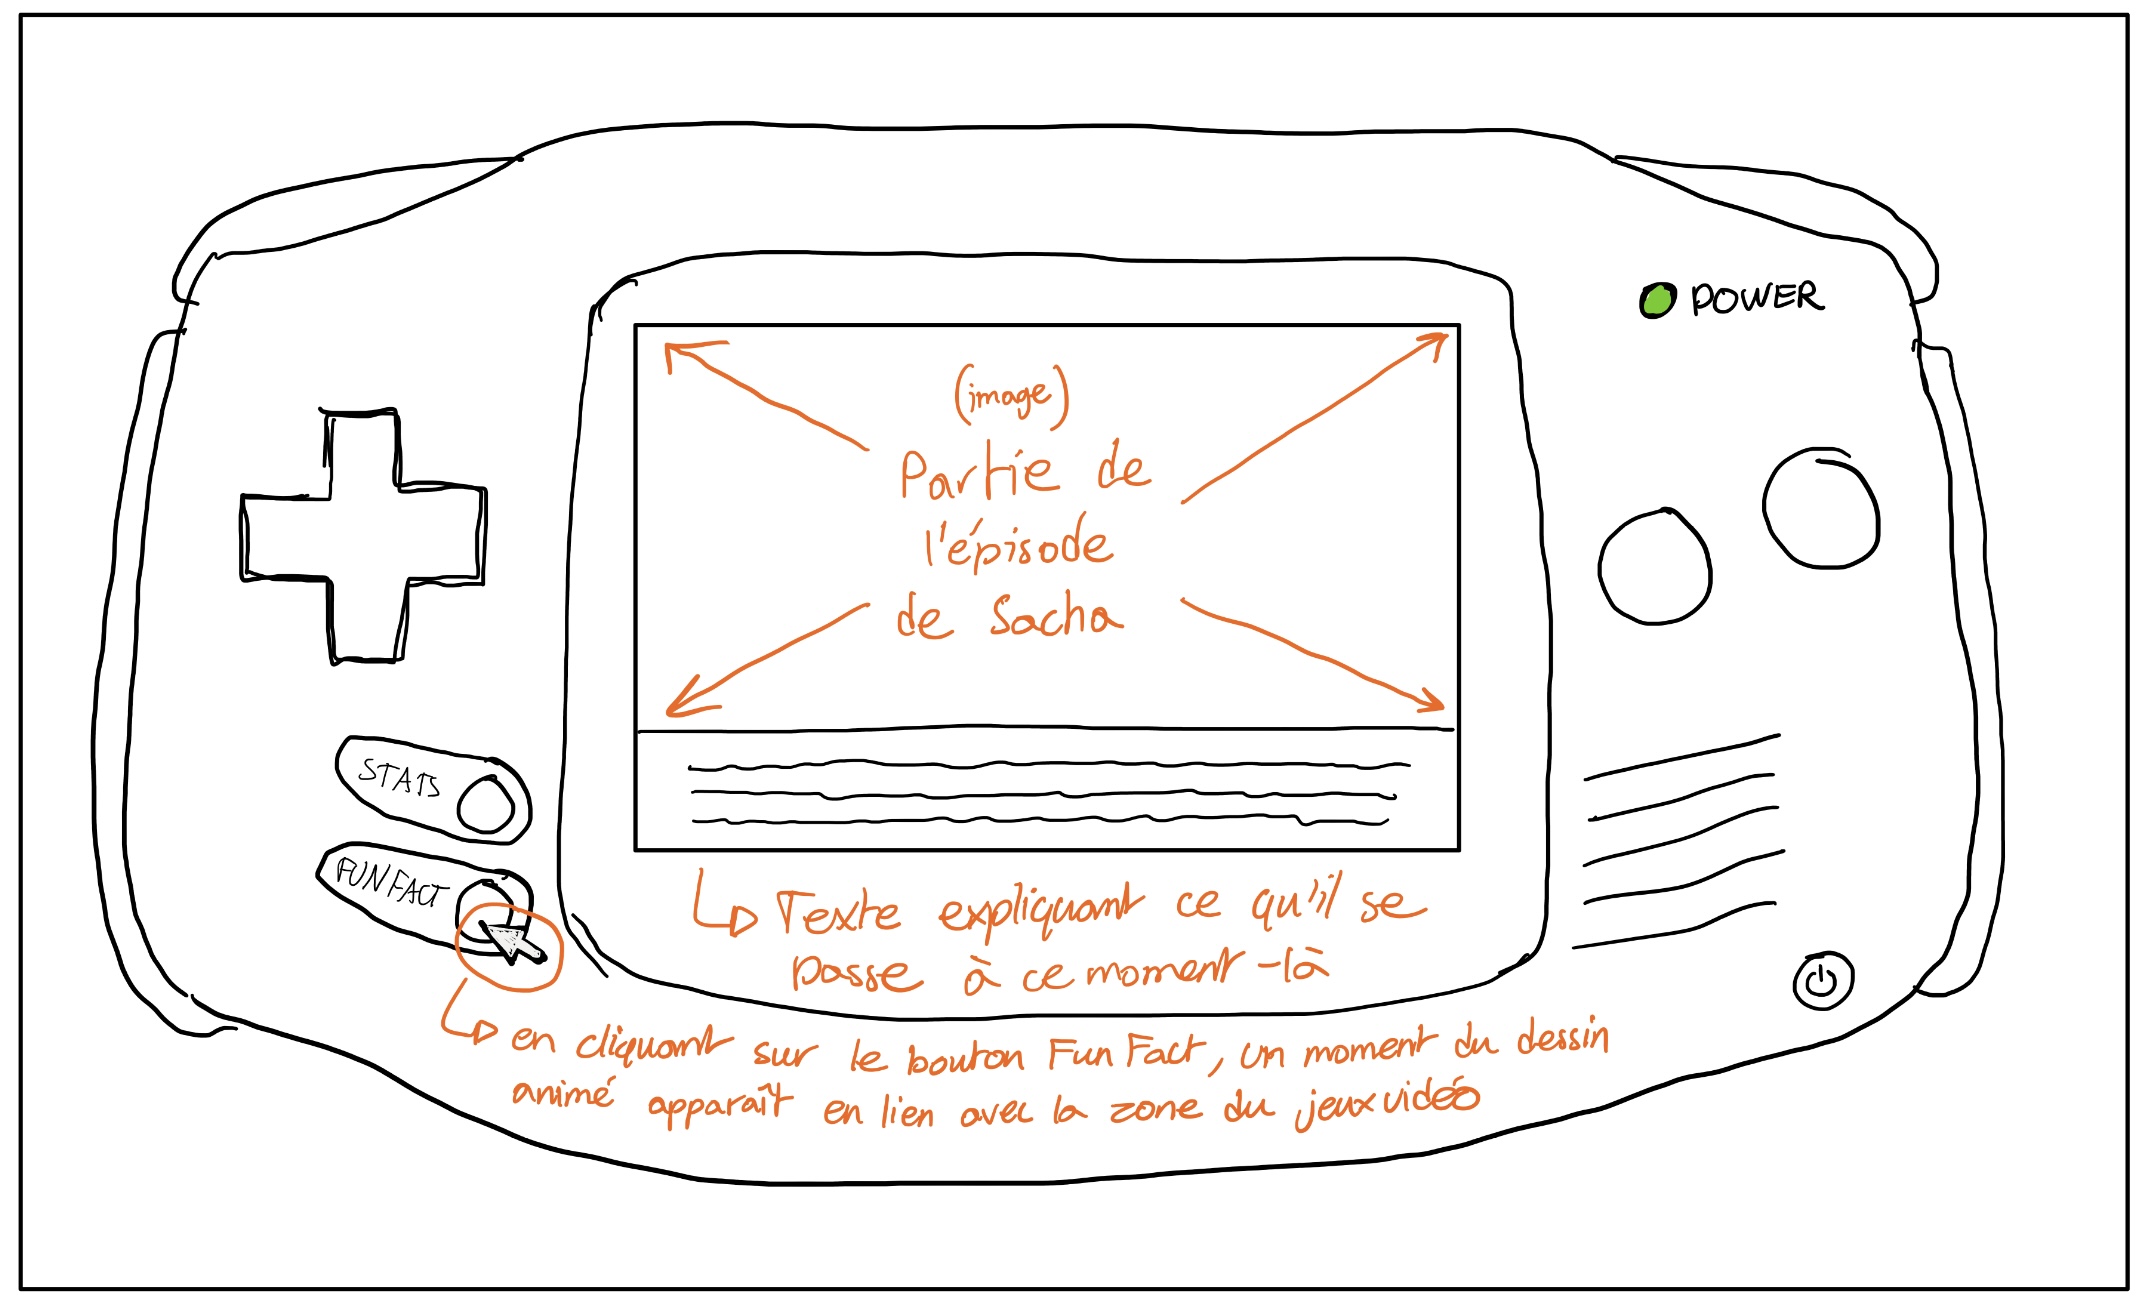 POWER
(image)
Partie de
l'épisode
de Sacha
STATS
FUN FACT
Texte expliquant ce qu'il se
passe à ce moment-là
en cliquant sur le bouton Fun Fact, un moment du dessin
animé apparaît en lien avec la zone du jeux vidéo